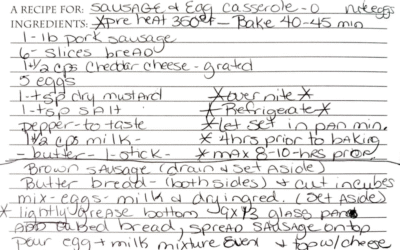 A RECIPE FOR: SAUSAGE & Egg Casserole - O
INGREDIENTS: *pre heat 350° - Bake 40-45 min
1- lb pork sausage
6- slices bread
1 1/2 cps cheddar cheese - grated
5 eggs
1-tsp dry mustard *over nite*
1-tsp salt *Refrigerate*
pepper-to taste *let set in pan min.
1 1/2 cps milk- * 4hrs prior to baking
- butter - 1-stick- * max 8-10-hrs prior
Brown sausage (drain & set aside)
Butter bread- (both sides) & cut in cubes
mix-eggs-milk & dry ingred. (set aside)
* lightly grease bottom 9x13 glass pan
Add cubed bread, spread sausage on top
pour egg & milk mixture even & top w/cheese